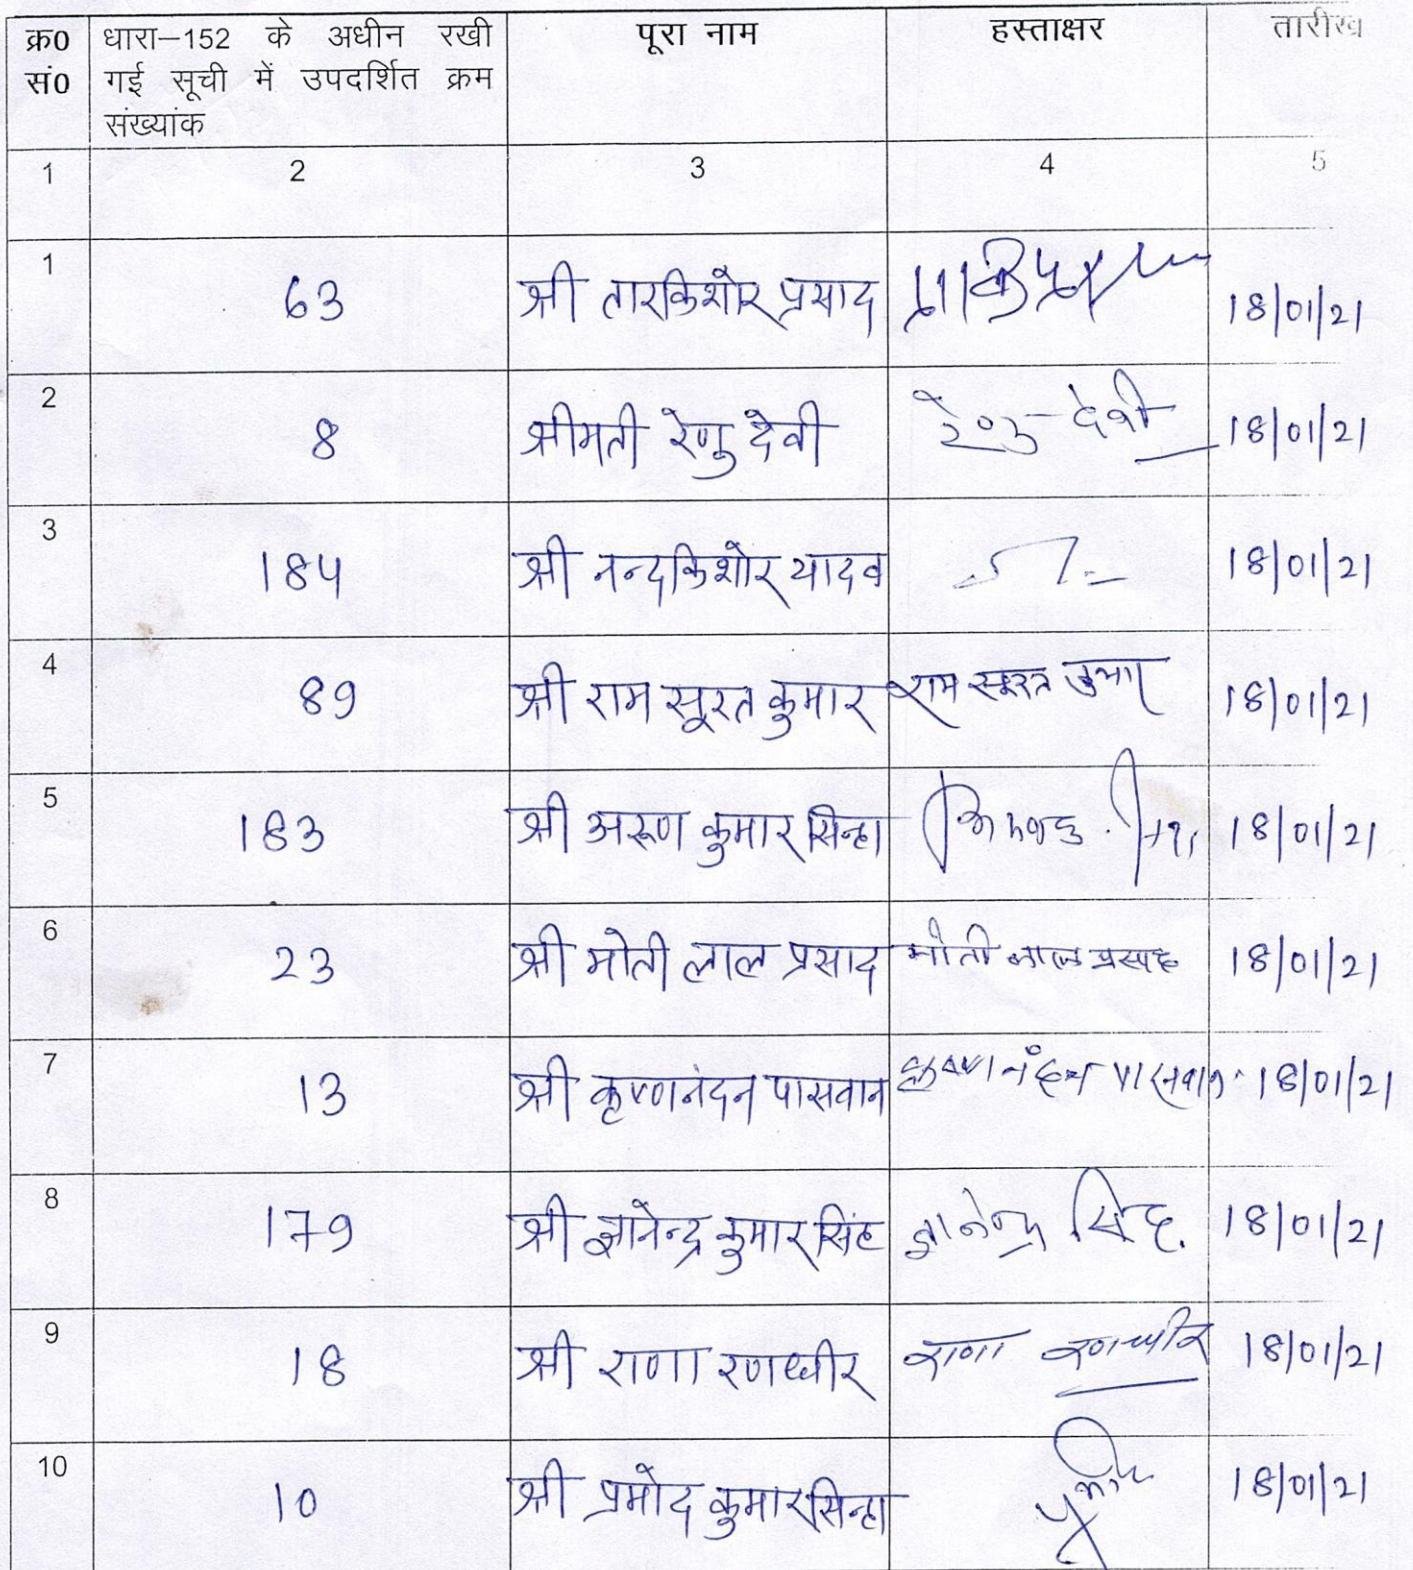 क्र0 सं0 धारा–152 के अधीन रखी गई सूची में उपदर्शित क्रम संख्यांक पूरा नाम हस्ताक्षर तारीख
1 2 3 4 5
1 63 श्री तारकिशोर प्रसाद 18/01/21
2 8 श्रीमती रेणु देवी रेणु देवी 18/01/21
3 184 श्री नन्दकिशोर यादव 18/01/21
4 89 श्री राम सूरत कुमार राम सूरत कुमार 18/01/21
5 183 श्री अरूण कुमार सिन्हा 18/01/21
6 23 श्री मोती लाल प्रसाद मोती लाल प्रसाद 18/01/21
7 13 श्री कृष्णनंदन पासवान कृष्ण नंदन पासवान 18/01/21
8 179 श्री ज्ञानेन्द्र कुमार सिंह ज्ञानेन्द्र सिंह 18/01/21
9 18 श्री राणा रणधीर राणा रणधीर 18/01/21
10 10 श्री प्रमोद कुमार सिन्हा 18/01/21